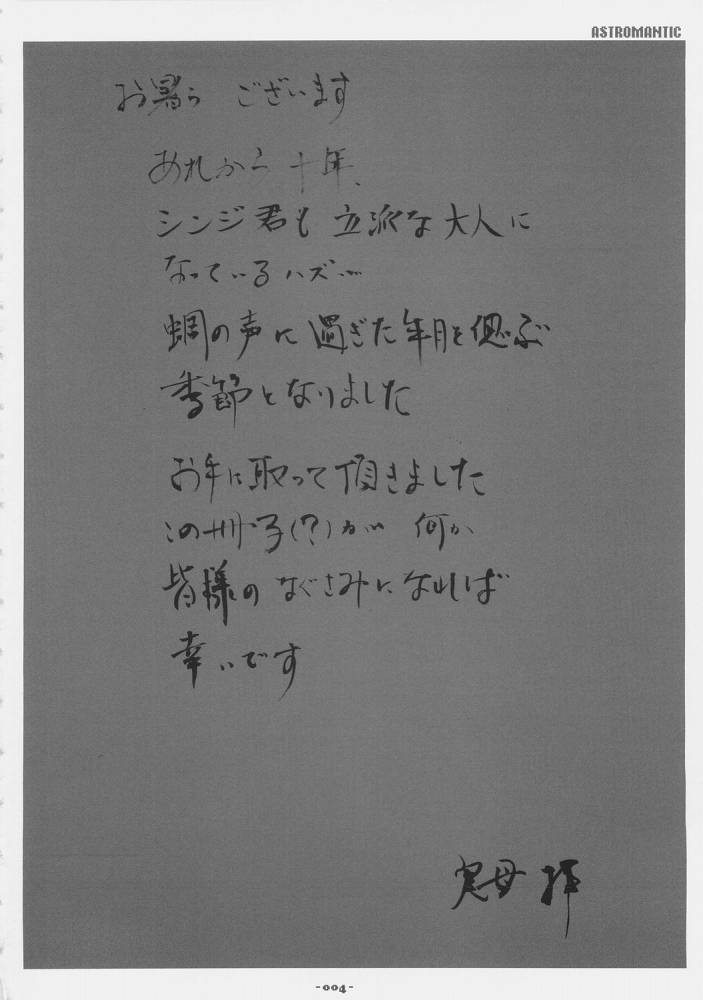 ASTROMANTIC
お暑う ございます
あれから十年、
シンジ君も 立派な大人に
なっているハズ…
蜩の声に 過ぎた年月を偲ぶ
季節となりました
お手に取って頂きました
この冊子(?)が 何か
皆様の なぐさみに なれば
幸いです
実母 拝
-004-